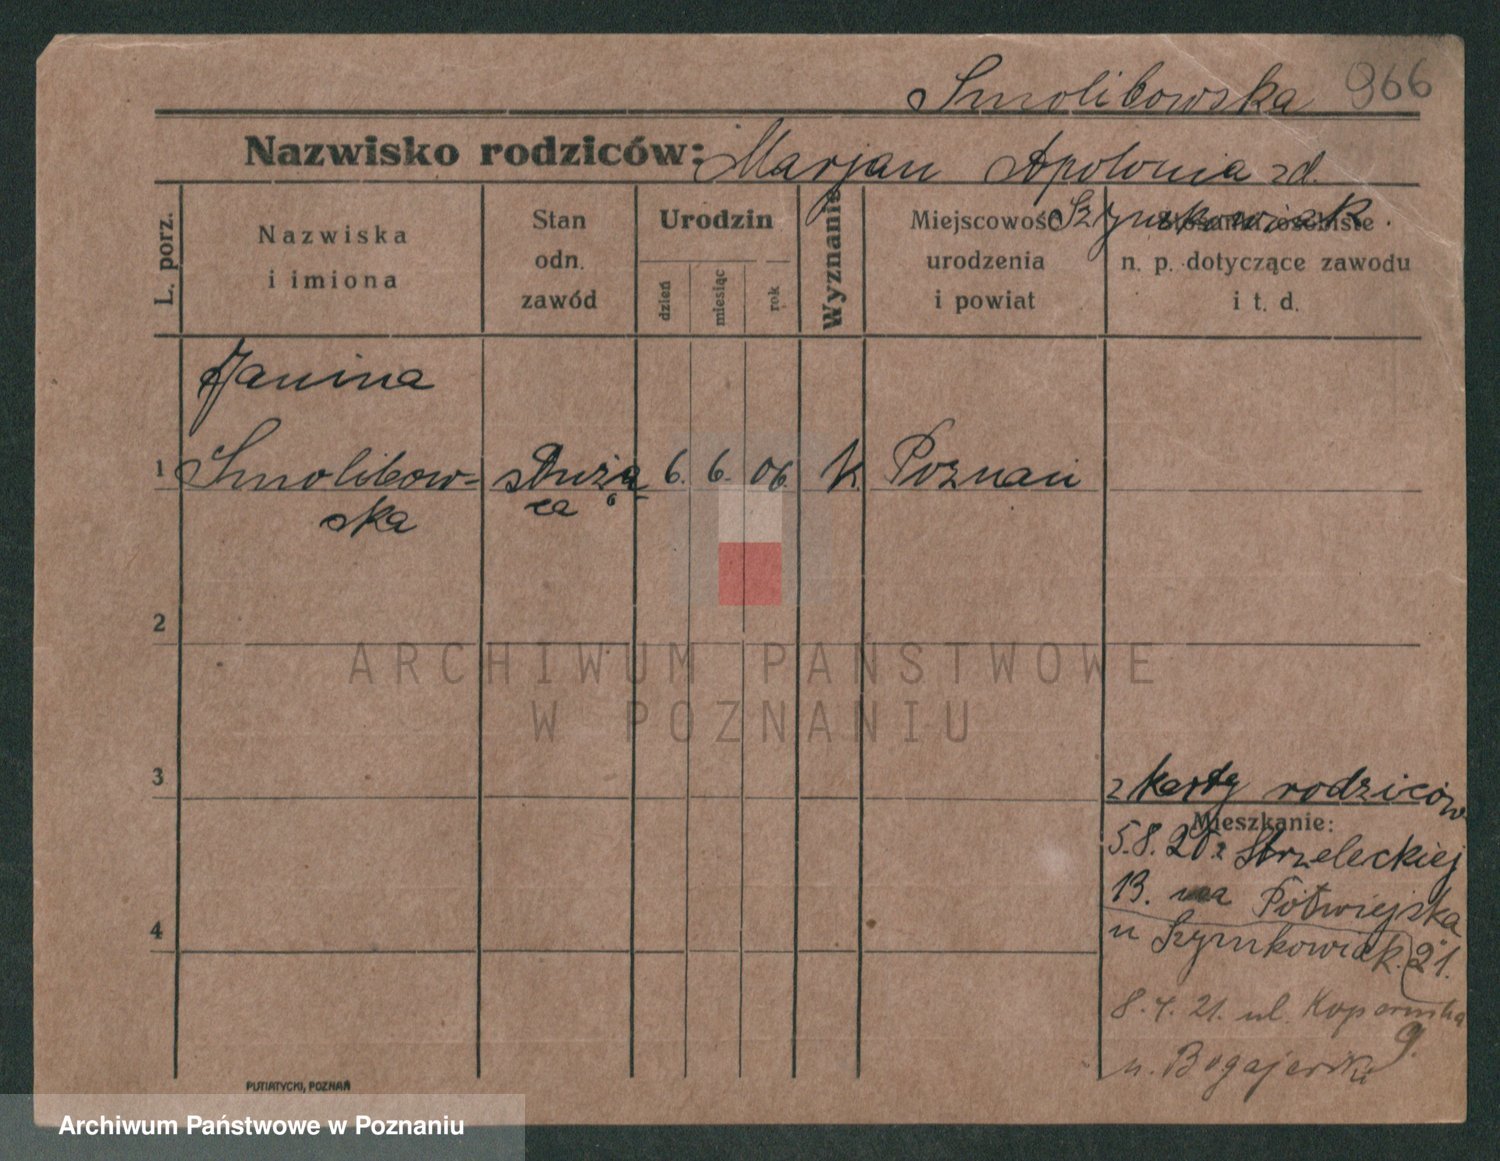 Smolibowska 966
Nazwisko rodziców: Marjan Apolonia zd.
Szymkowiak
L. porz.
Nazwiska
i imiona
Stan
odn.
zawód
Urodzin
dzień
miesiąc
rok
Wyznanie
Miejscowość
urodzenia
i powiat
osobiste
n. p. dotyczące zawodu
i t. d.
Janina
1 Smolibow- służą- 6. 6. 06. k. Poznań
ska ca
2
ARCHIWUM PAŃSTWOWE
W POZNANIU
3
z karty rodziców
Mieszkanie:
5.8.20 z Strzeleckiej
13. na Półwiejska
4
u Szymkowiak 21.
8.4.21. ul. Kopernika
9.
u. Bogajerski
PUTIATYCKI, POZNAŃ
Archiwum Państwowe w Poznaniu